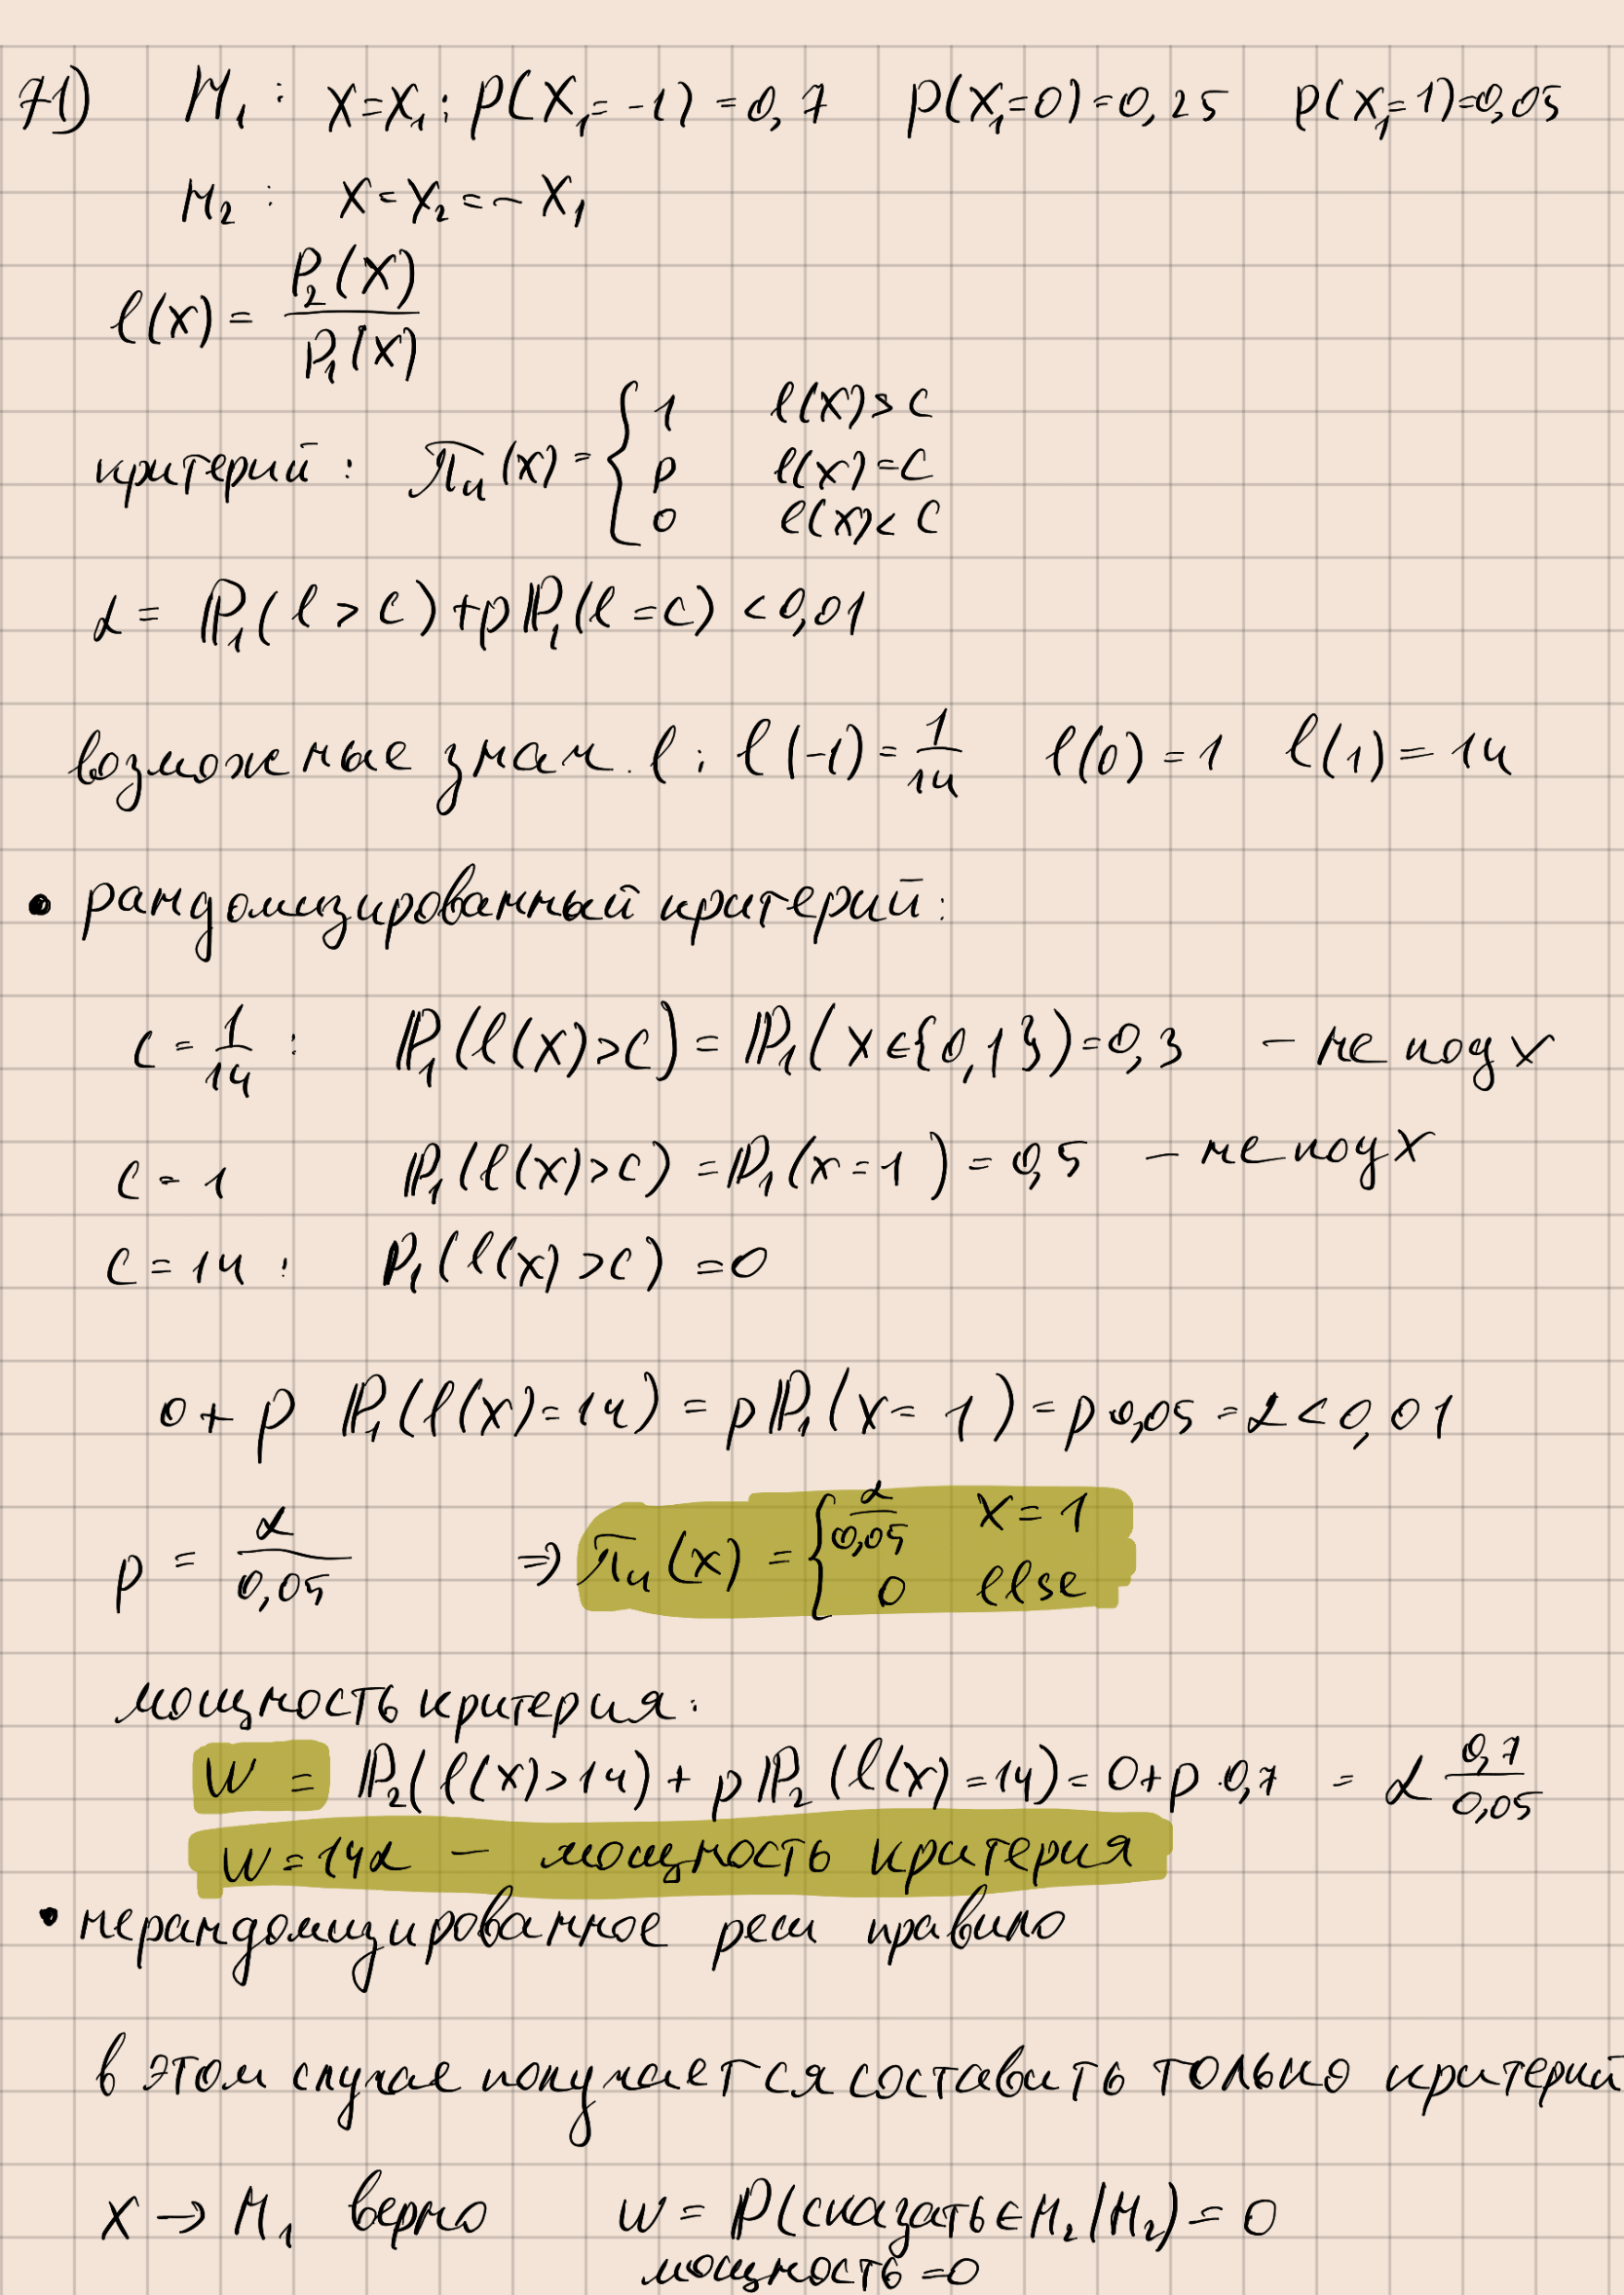 71) M₁ : X=X₁; P(X₁=-1)=0,7 P(X₁=0)=0,25 P(X₁=1)=0,05
M₂ : X=X₂=-X₁
l(x) = P₂(X) / P₁(X)
критерий : πц(x) = { 1 l(x)>C
p l(x)=C
0 l(x)<C
α = P₁(l > C)+pP₁(l=C) < 0,01
возможные знач. l : l(-1)=1/14 l(0)=1 l(1)=14
• рандомизированный критерий:
C=1/14 : P₁(l(x)>C) = P₁(x∈{0,1})=0,3 – не подх
C=1 P₁(l(x)>C) =P₁(x=1) = 0,5 – не подх
C=14 : P₁(l(x)>C) =0
0+p P₁(l(x)=14) = pP₁(x=1)=p 0,05=α<0,01
p = α/0,05 ⇒ πц(x) = { α/0,05 X=1
0 else
мощность критерия:
W = P₂(l(x)>14)+pP₂(l(x)=14)=0+p·0,7 = α 0,7/0,05
W=14α – мощность критерия
• нерандомизированное реш правило
в этом случае получается составить только критерий
X → M₁ верно W = P(сказать∈M₂|M₂)=0
мощность =0